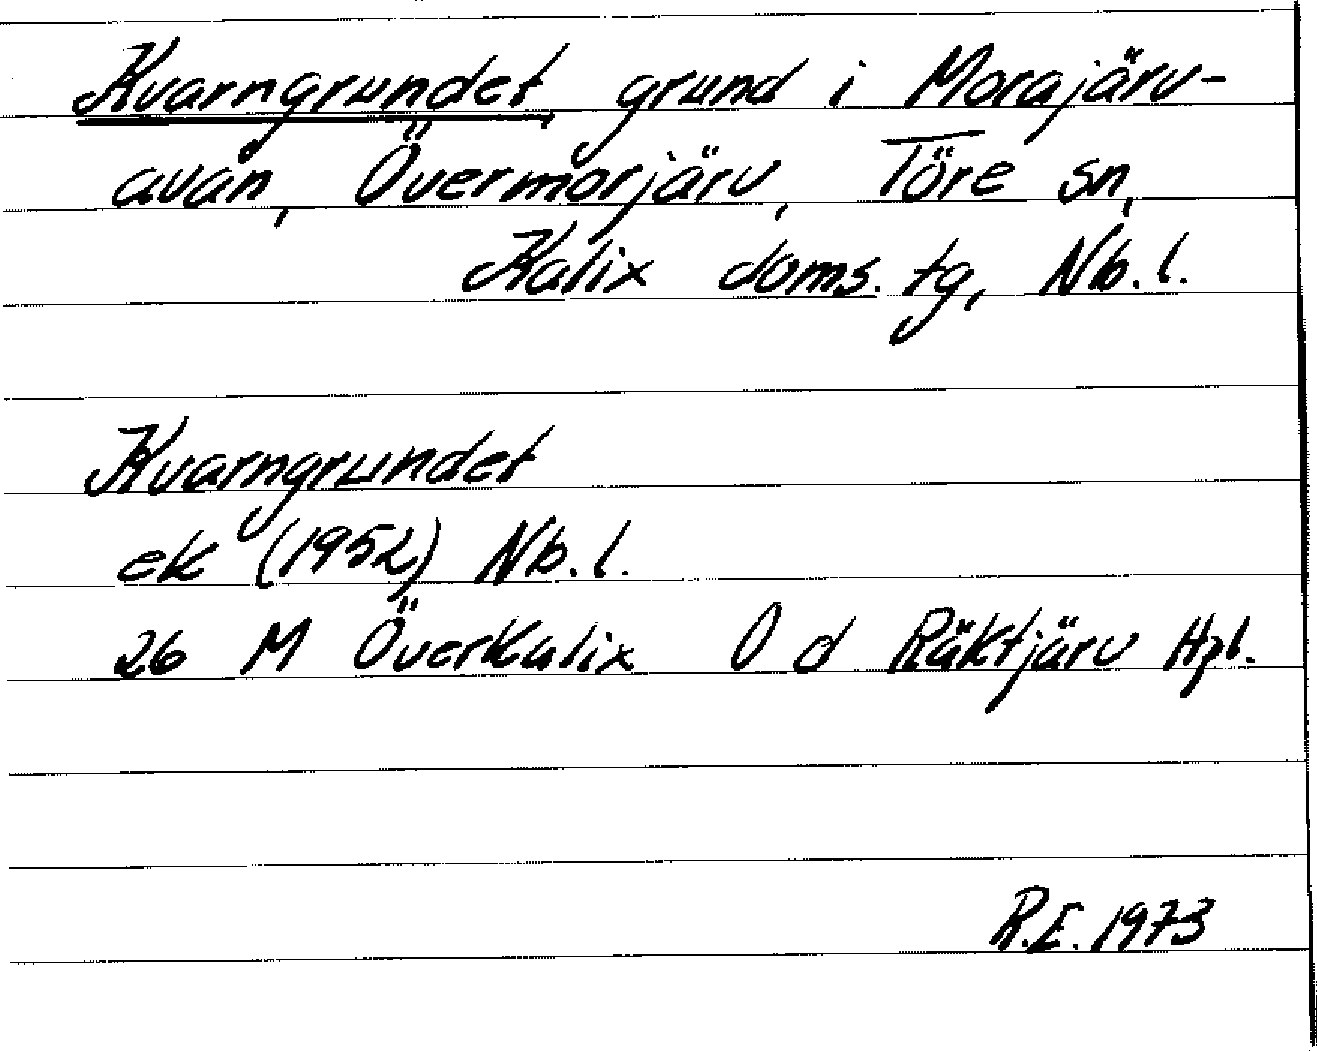 Kvarngrundet, grund i Morajärv-
avan, Övermorjärv, Töre sn,
Kalix doms. tg, Nb.l.
Kvarngrundet
ek (1952) Nb.l.
26 M Överkalix O d Räktjärv Hpl.
R.E. 1973